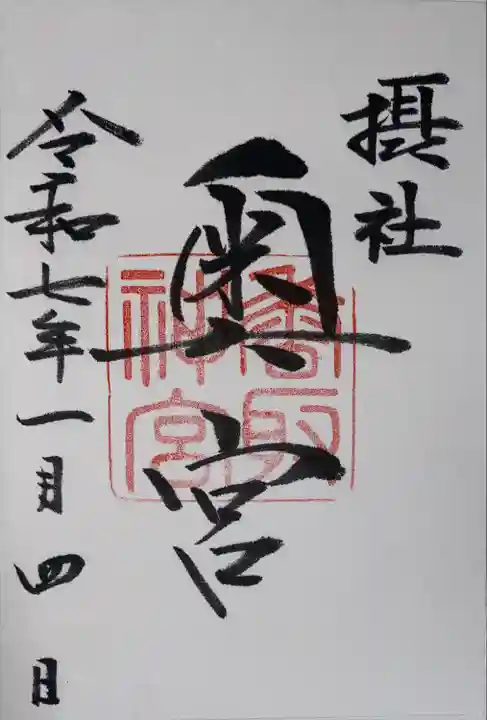 摂社
奥宮
香取
神宮
令和七年一月四日